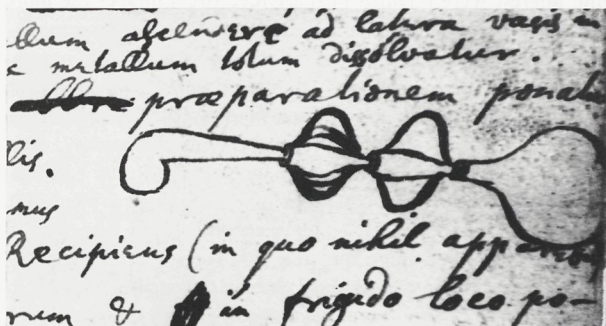 llum ascendere ad latura vasis in
metallum totum dissolvatur.
præparationem ponat
lis.
mus
Recipiens (in quo nihil appar
rum & in frigido loco po-